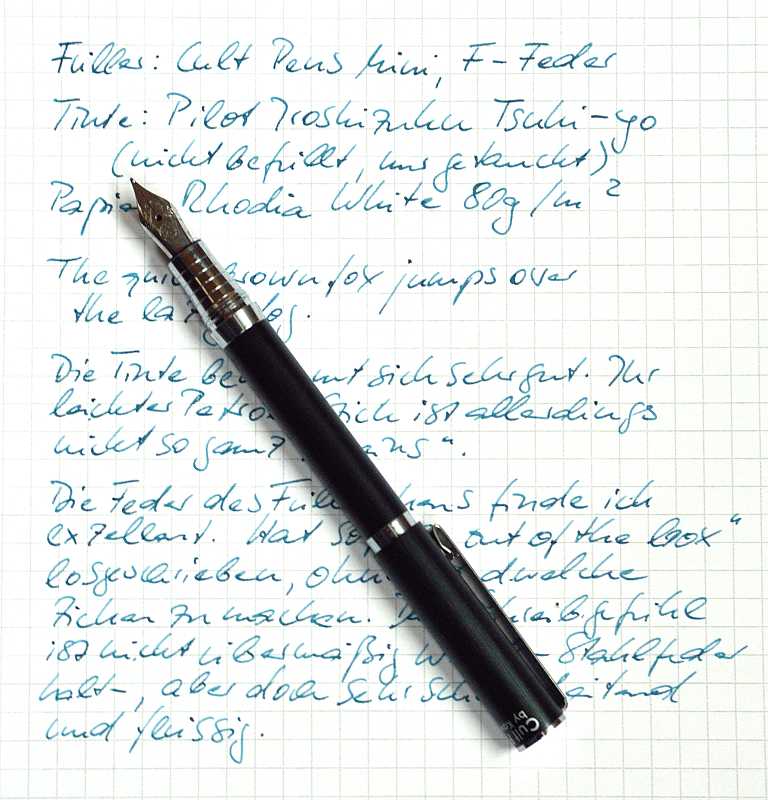 Füller: Cult Pens Mini, F-Feder
Tinte: Pilot Iroshizuku Tsuki-yo
(nicht befüllt, nur getaucht)
Papier Rhodia White 80g/m²
The quick brown fox jumps over
the lazy dog.
Die Tinte benimmt sich sehr gut. Ihr
leichter Petrol-Stich ist allerdings
nicht so ganz "meins".
Die Feder des Füllerchens finde ich
exzellent. Hat sofort "out of the box"
losgeschrieben, ohne irgendwelche
Zicken zu machen. Das Schreibgefühl
ist nicht übermäßig weich - Stahlfeder
halt-, aber doch sehr schön gleitend
und flüssig.
Cult
by